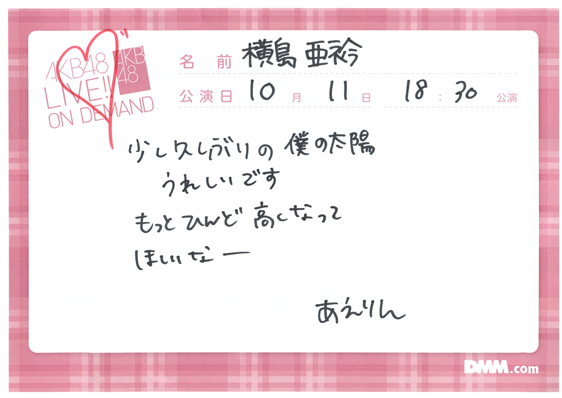 AKB48
LIVE!!
ON DEMAND
AKB
48
名前 横島亜衿
公演日 10月 11日 18:30 公演
少し久しぶりの 僕の太陽
うれしいです
もっとひんど高くなって
ほしいなー
あえりん
DMM.com